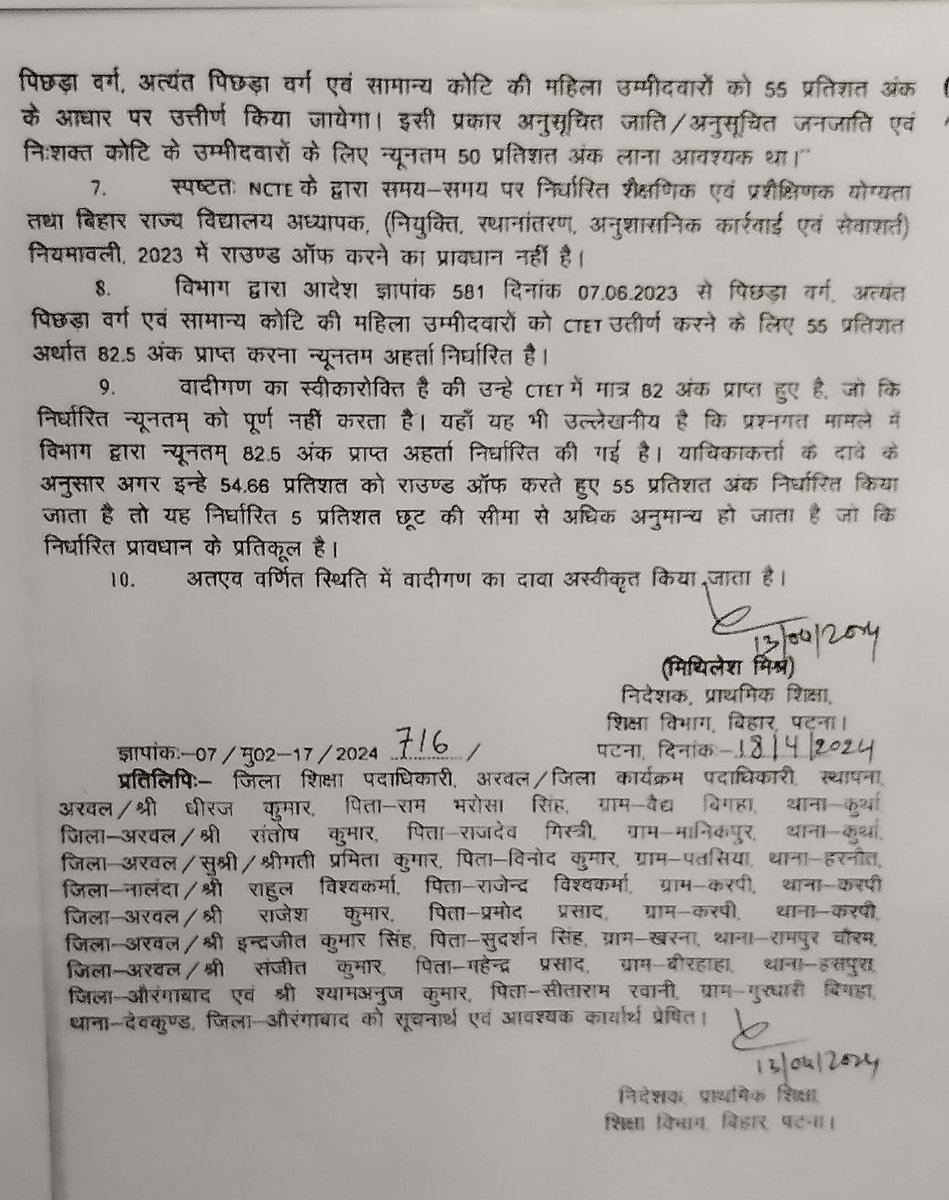 पिछड़ा वर्ग, अत्यंत पिछड़ा वर्ग एवं सामान्य कोटि की महिला उम्मीदवारों को 55 प्रतिशत अंक
के आधार पर उत्तीर्ण किया जायेगा। इसी प्रकार अनुसूचित जाति/अनुसूचित जनजाति एवं
निःशक्त कोटि के उम्मीदवारों के लिए न्यूनतम 50 प्रतिशत अंक लाना आवश्यक था।"
7. स्पष्टतः NCTE के द्वारा समय-समय पर निर्धारित शैक्षणिक एवं प्रशैक्षिणक योग्यता
तथा बिहार राज्य विद्यालय अध्यापक, (नियुक्ति, स्थानांतरण, अनुशासनिक कार्रवाई एवं सेवाशर्त)
नियमावली, 2023 में राउण्ड ऑफ करने का प्रावधान नहीं है।
8. विभाग द्वारा आदेश ज्ञापांक 581 दिनांक 07.06.2023 से पिछड़ा वर्ग, अत्यंत
पिछड़ा वर्ग एवं सामान्य कोटि की महिला उम्मीदवारों को CTET उतीर्ण करने के लिए 55 प्रतिशत
अर्थात 82.5 अंक प्राप्त करना न्यूनतम अहर्ता निर्धारित है।
9. वादीगण का स्वीकारोक्ति है की उन्हे CTET में मात्र 82 अंक प्राप्त हुए है, जो कि
निर्धारित न्यूनतम् को पूर्ण नहीं करता है। यहाँ यह भी उल्लेखनीय है कि प्रश्नगत मामले में
विभाग द्वारा न्यूनतम् 82.5 अंक प्राप्त अहर्ता निर्धारित की गई है। याचिकाकर्त्ता के दावे के
अनुसार अगर इन्हे 54.66 प्रतिशत को राउण्ड ऑफ करते हुए 55 प्रतिशत अंक निर्धारित किया
जाता है तो यह निर्धारित 5 प्रतिशत छूट की सीमा से अधिक अनुमान्य हो जाता है जो कि
निर्धारित प्रावधान के प्रतिकूल है।
10. अतएव वर्णित स्थिति में वादीगण का दावा अस्वीकृत किया जाता है।
13/04/2024
(मिथिलेश मिश्र)
निदेशक, प्राथमिक शिक्षा,
शिक्षा विभाग, बिहार, पटना।
ज्ञापांकः-07/मु02-17/2024 716 / पटना, दिनांक-18/4/2024
प्रतिलिपिः- जिला शिक्षा पदाधिकारी, अरवल/जिला कार्यक्रम पदाधिकारी, स्थापना,
अरवल/श्री धीरज कुमार, पिता-राम भरोसा सिंह, ग्राम-वैद्य बिगहा, थाना-कुर्था
जिला-अरवल/श्री संतोष कुमार, पिता-राजदेव मिस्त्री, ग्राम-मानिकपुर, थाना-कुर्था,
जिला-अरवल/सुश्री/श्रीमती प्रमिता कुमार, पिता-विनोद कुमार, ग्राम-पतसिया, थाना-हरनौत,
जिला-नालंदा/श्री राहुल विश्वकर्मा, पिता-राजेन्द्र विश्वकर्मा, ग्राम-करपी, थाना-करपी
जिला-अरवल/श्री राजेश कुमार, पिता-प्रमोद प्रसाद, ग्राम-करपी, थाना-करपी,
जिला-अरवल/श्री इन्द्रजीत कुमार सिंह, पिता-सुदर्शन सिंह, ग्राम-खरना, थाना-रामपुर चौरम,
जिला-अरवल/श्री संजीत कुमार, पिता-महेन्द्र प्रसाद, ग्राम-बीरहाहा, थाना-हसपुरा,
जिला-औरंगाबाद एवं श्री श्यामअनुज कुमार, पिता-सीताराम रवानी, ग्राम-गुरधारी बिगहा,
थाना-देवकुण्ड, जिला-औरंगाबाद को सूचनार्थ एवं आवश्यक कार्यार्थ प्रेषित।
13/04/2024
निदेशक, प्राथमिक शिक्षा,
शिक्षा विभाग, बिहार, पटना।